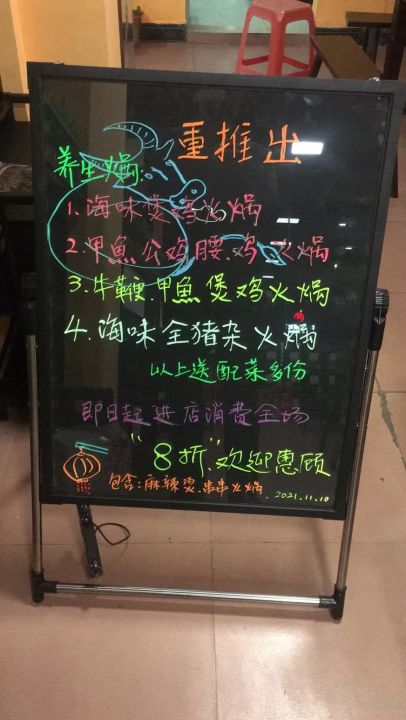 重推出
养生火焗
1.海味煲鸡火焗
2.甲魚公鸡腰.鸡火焗
3.牛鞭.甲魚煲鸡火焗
4.海味全猪杂火焗
以上送配菜多份
即日起进店消费全场
"8折"欢迎惠顾
包含:麻辣烫.串串火焗
2021.11.10